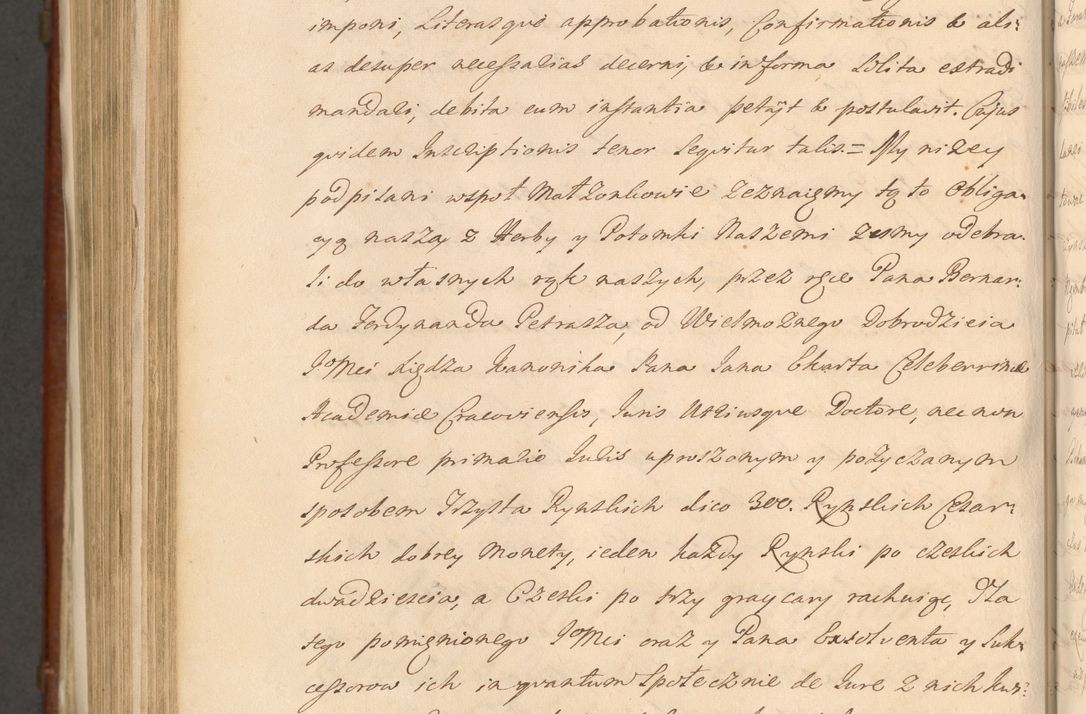 imponi, Literasque approbationis, Confirmationis & ali:
as desuper necessarias decerni, & in forma solita extradi
mandari, debita cum instantia petijt & postulavit. Cujus
quidem Inscriptionis tenor sequitur talis = My nizey
podpisani wspoł Małżonkowie zeznaiemy tą to Obliga:
cyą naszą z Herby y Potomki Naszemi żesmy odebra:
li do własnych rąk naszych, przez ręce Pana Bernar:
da Ferdynanda Petrasza, od Wielmożnego Dobrodzieia
JoMci Xiędza Kanonika Pana Jana Ekarta Celeberrimæ
Academiæ Cracoviensis, Juris Utriusque Doctore, nec non
Professore primario Juris uproszonym y pożyczanym
sposobem Trzysta Rynskich dico 300. Rynskich Cesar:
skich dobrey Monety, ieden każdy Rynski po czeskich
dwadziescia, a Czeski po trzy graycary rachuiąc, Za
tego pomięnionego JoMci oraz y Pana Exsolventa y Suk:
cessorow ich in quantum społecznie de Jure z nich kus: